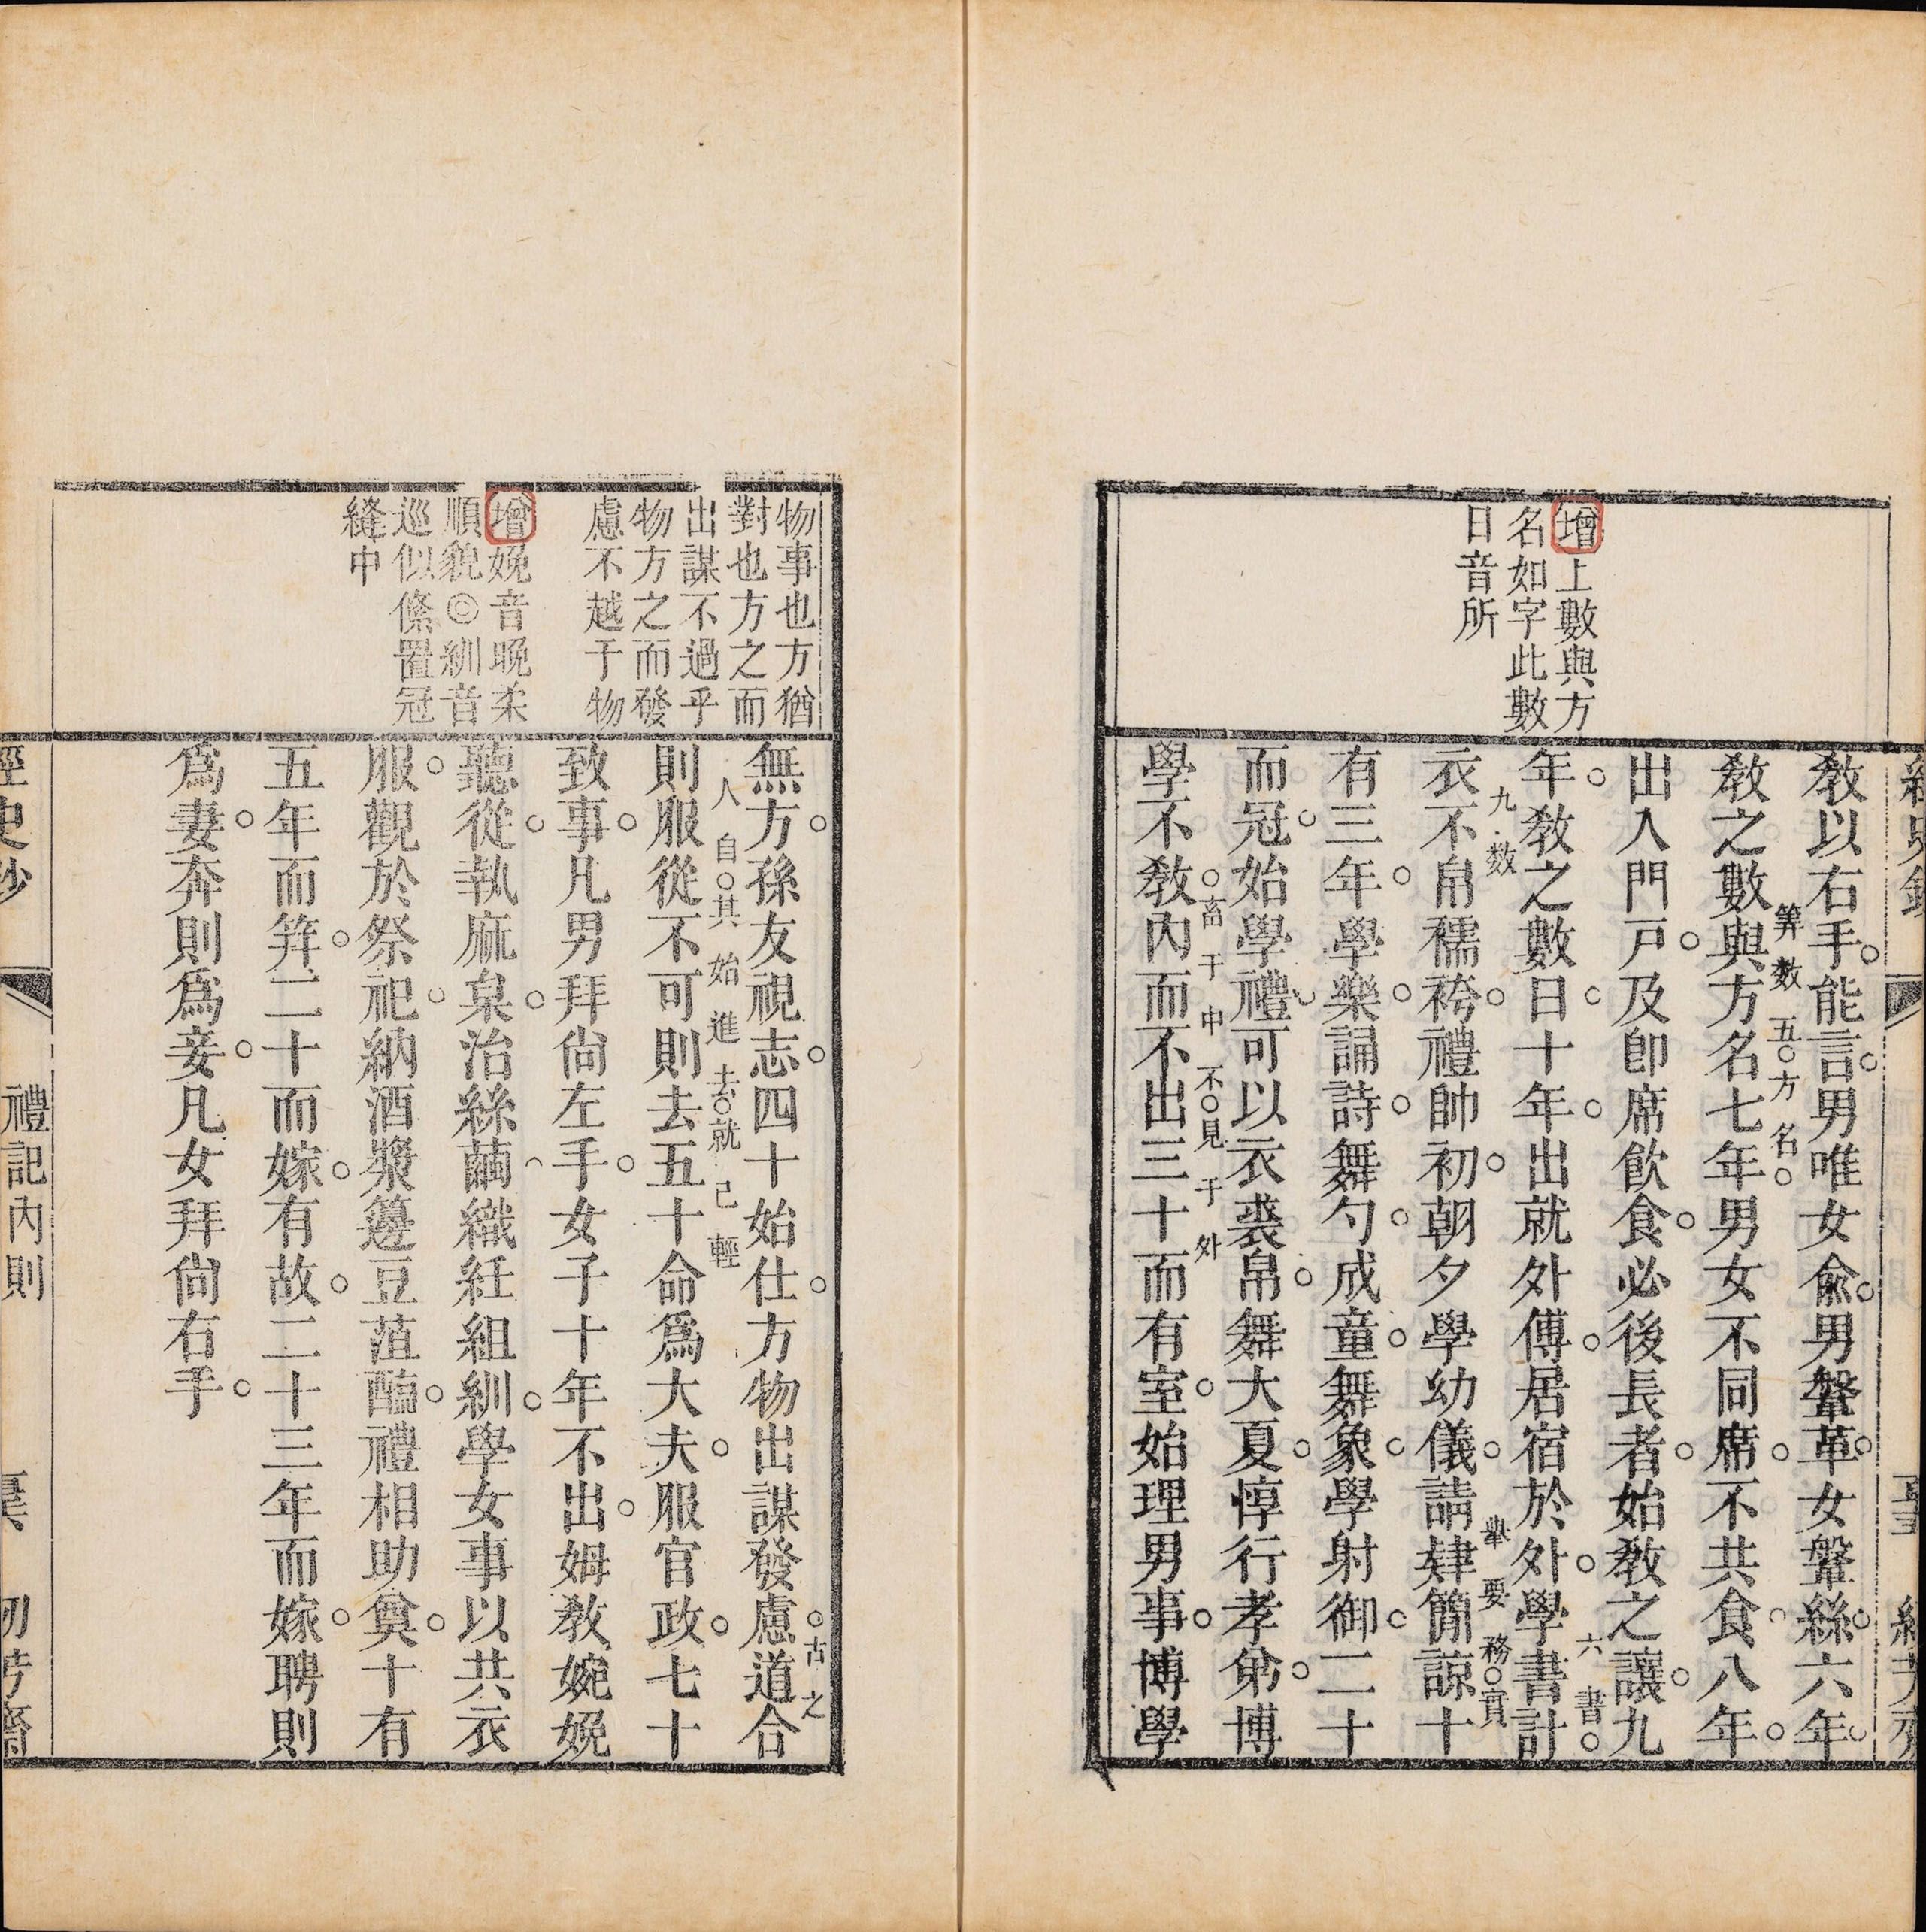 增上數與方
名如字此數
日音所
教以右手。能言。男唯女兪。男鞶革。女鞶絲。六年。
教之數與方名七年男女不同席。不共食。八年。
筭數 五〇方名。
出入門戸。及卽席飮食。必後長者。始教之讓。九
年。教之數日。十年。出就外傅。居宿於外。學書計
六書。
衣不帛襦袴。禮帥初。朝夕學幼儀。請肄簡諒十
九數
舉要務〇實
有三年。學樂。誦詩。舞勺。成童。舞象。學射御。二十
而冠。始學禮。可以衣裘帛。舞大夏。惇行孝弟。博
學不教內而不出三十而有室。始理男事。博學
〇畜于中 不〇見于外
物事也方猶
對也方之而
出謀不過乎
物方之而發
慮不越于物
增娩音晚柔
順貌◎紃音
巡似絛置冠
縫中
無方。孫友視志。四十始仕。方物出謀發慮。道合
〇古之
則服從不可則去五十命爲大夫。服官政。七十
人自〇其始進 去〇就己輕
致事。凡男拜尙左手。女子十年不出。姆教婉娩
聽從。執麻枲。治絲繭。織紝組紃。學女事以共衣
服。觀於祭祀。納酒漿籩豆菹醢。禮相助奠。十有
五年而笄。二十而嫁。有故。二十三年而嫁。聘則
爲妻。奔則爲妾。凡女拜尙右手。
禮記內則